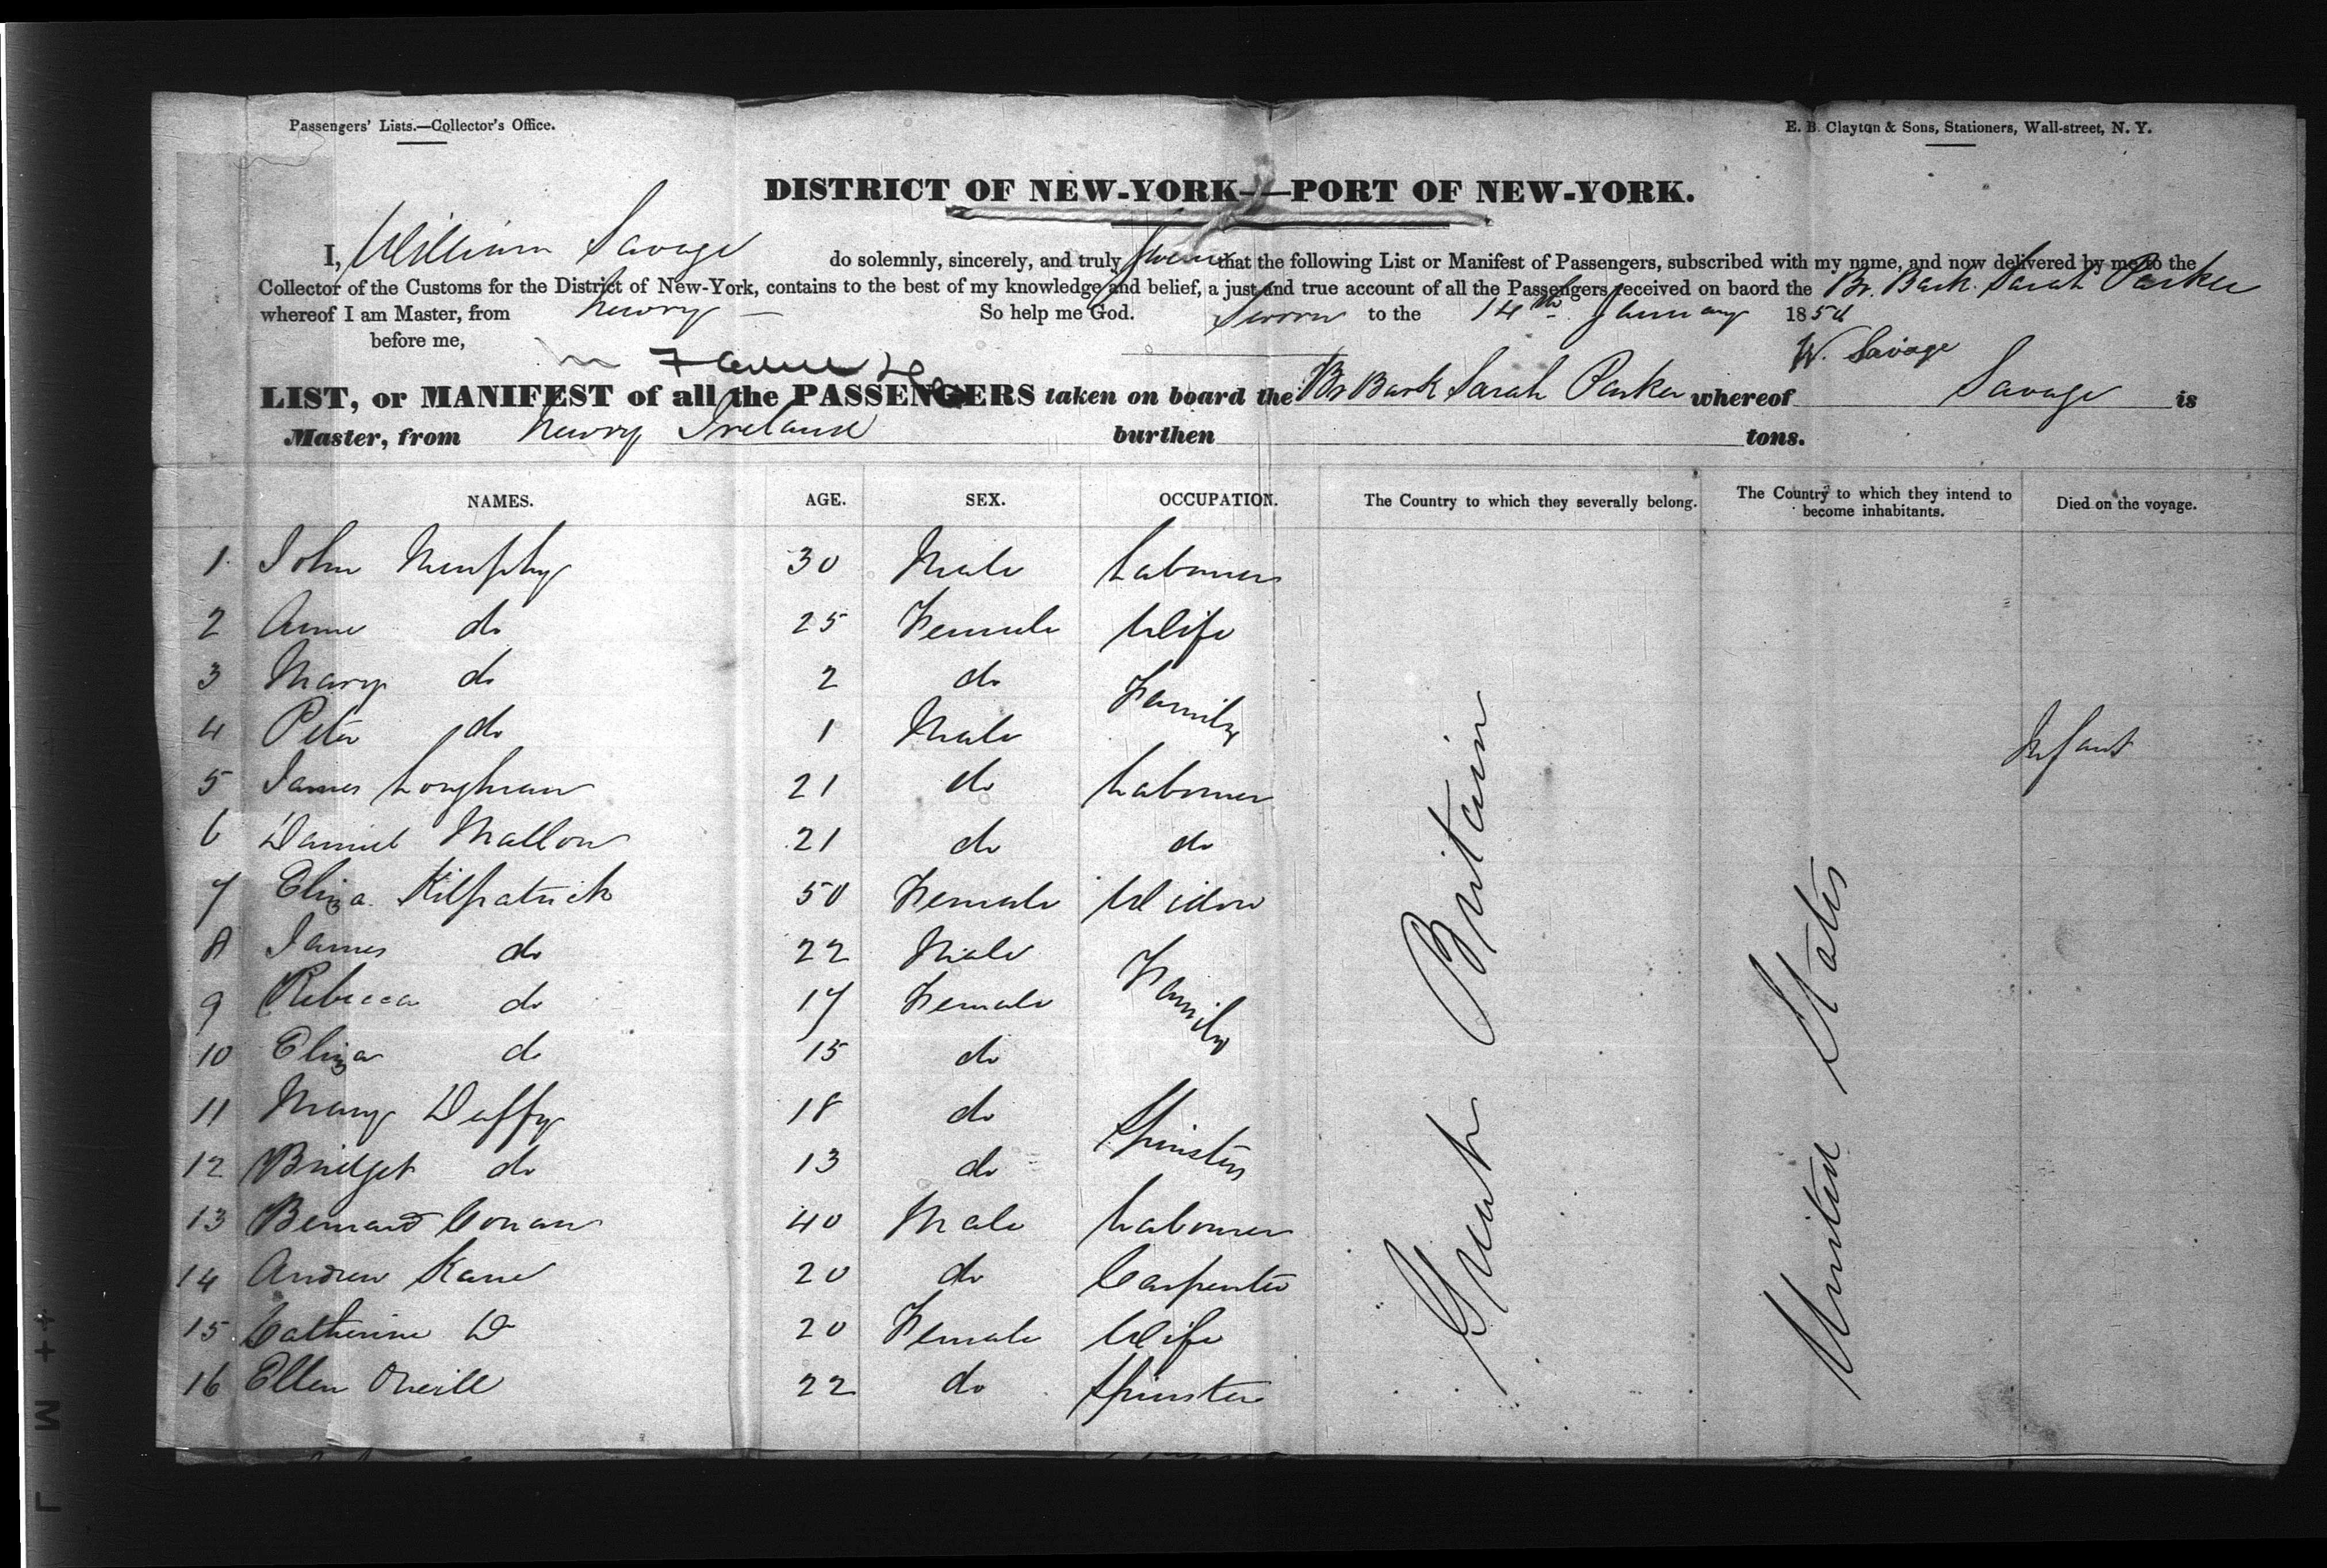 Passengers' Lists.—Collector's Office.
E. B. Clayton & Sons, Stationers, Wall-street, N. Y.
DISTRICT OF NEW-YORK——PORT OF NEW-YORK.
I, William Savage do solemnly, sincerely, and truly swear that the following List or Manifest of Passengers, subscribed with my name, and now delivered by me to the
Collector of the Customs for the District of New-York, contains to the best of my knowledge and belief, a just and true account of all the Passengers received on baord the Br. Bark Sarah Parker
whereof I am Master, from Newry — So help me God. Sworn to the 14th January 1850
before me, W. Savage
LIST, or MANIFEST of all the PASSENGERS taken on board the Br Bark Sarah Parker whereof Savage is
Master, from Newry Ireland burthen tons.
NAMES. AGE. SEX. OCCUPATION. The Country to which they severally belong. The Country to which they intend to become inhabitants. Died on the voyage.
1 John Murphy 30 Male Labourer
2 Anne do 25 Female Wife
3 Mary do 2 do Family
4 Peter do 1 Male Infant
5 James Loughran 21 do Labourer
6 Daniel Mallon 21 do do
7 Eliza Kilpatrick 50 Female Widow
8 James do 22 Male Family
9 Rebecca do 17 Female
10 Eliza do 15 do
11 Mary Duffy 18 do Spinsters
12 Bridget do 13 do
13 Bernard Conan 40 Male Labourer
14 Andrew Kane 20 do Carpenter
15 Catherine Do 20 Female Wife
16 Ellen Oneill 22 do Spinster
Great Britain
United States